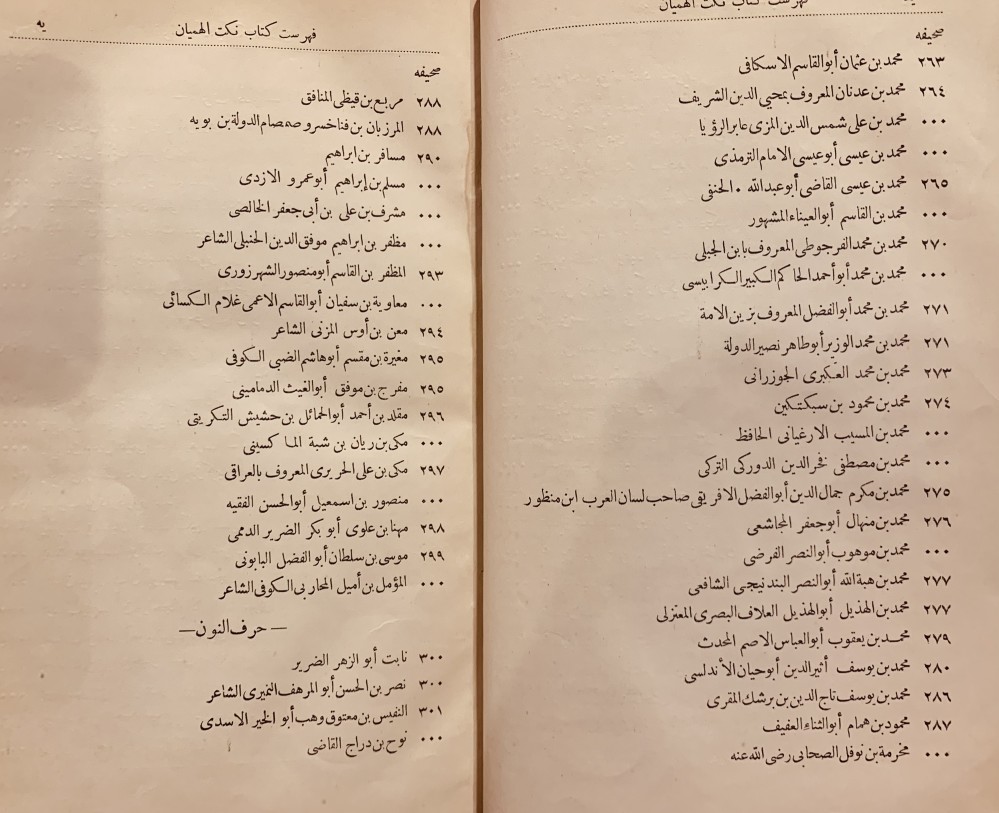 فهرست كتاب نكت الهميان
صحيفه
٢٦٣ محمد بن عثمان أبو القاسم الاسكافى
٢٦٤ محمد بن عدنان المعروف بمحيى الدين الشريف
٠٠٠ محمد بن على شمس الدين المزى عابر الرؤيا
٠٠٠ محمد بن عيسى أبو عيسى الامام الترمذى
٢٦٥ محمد بن عيسى القاضى أبو عبدالله . الحنفى
٠٠٠ محمد بن القاسم أبو العيناء المشهور
٢٧٠ محمد بن محمد الفرجوطى المعروف بابن الجبلى
٠٠٠ محمد بن محمد أبو أحمد الحاكم الكبير الكرابيسى
٢٧١ محمد بن محمد أبو الفضل المعروف بزين الامة
٢٧١ محمد بن محمد الوزير أبو طاهر نصير الدولة
٢٧٣ محمد بن محمد العكبرى الجوزرانى
٢٧٤ محمد بن محمود بن سبكتكين
٠٠٠ محمد بن المسيب الارغيانى الحافظ
٠٠٠ محمد بن مصطفى فخر الدين الدوركى التركى
٢٧٥ محمد بن مكرم جمال الدين أبو الفضل الافريقى صاحب لسان العرب ابن منظور
٢٧٦ محمد بن منهال أبو جعفر المجاشعى
٠٠٠ محمد بن موهوب أبو النصر الفرضى
٢٧٧ محمد بن هبة الله أبو النصر البندنيجى الشافعى
٢٧٧ محمد بن الهذيل أبو الهذيل العلاف البصرى المعتزلى
٢٧٩ محمد بن يعقوب أبو العباس الاصم المحدث
٢٨٠ محمد بن يوسف أثير الدين أبو حيان الأندلسى
٢٨٦ محمد بن يوسف تاج الدين بن برشك المقرى
٢٨٧ محمود بن همام أبو الثناء العفيف
٠٠٠ مخرمة بن نوفل الصحابى رضى الله عنه
فهرست كتاب نكت الهميان يه
صحيفه
٢٨٨ مربع بن قيظى المنافق
٢٨٨ المرزبان بن فناخسرو صمصام الدولة بن بويه
٢٩٠ مسافر بن ابراهيم
٠٠٠ مسلم بن إبراهيم أبو عمرو الازدى
٠٠٠ مشرف بن على بن أبى جعفر الخالصى
٠٠٠ مظفر بن ابراهيم موفق الدين الحنبلى الشاعر
٢٩٣ المظفر بن القاسم أبو منصور الشهرزورى
٠٠٠ معاوية بن سفيان أبو القاسم الاعمى غلام الكسائى
٢٩٤ معن بن أوس المزنى الشاعر
٢٩٥ مغيرة بن مقسم أبو هاشم الضبى الكوفى
٢٩٥ مفرج بن موفق أبو الغيث الدمامينى
٢٩٦ مقلد بن أحمد أبو الحمائل بن حشيش التكريتى
٠٠٠ مكى بن ريان بن شبة الماكسينى
٢٩٧ مكى بن على الحريرى المعروف بالعراقى
٠٠٠ منصور بن اسمعيل أبو الحسن الفقيه
٢٩٨ مهنا بن علوى أبو بكر الضرير الدممى
٢٩٩ موسى بن سلطان أبو الفضل البابونى
٠٠٠ المؤمل بن أميل المحاربى الكوفى الشاعر
— حرف النون —
٣٠٠ نابت أبو الزهر الضرير
٣٠٠ نصر بن الحسن أبو المرهف النميرى الشاعر
٣٠١ النفيس بن معتوق وهب أبو الخير الاسدى
٠٠٠ نوح بن دراج القاضى